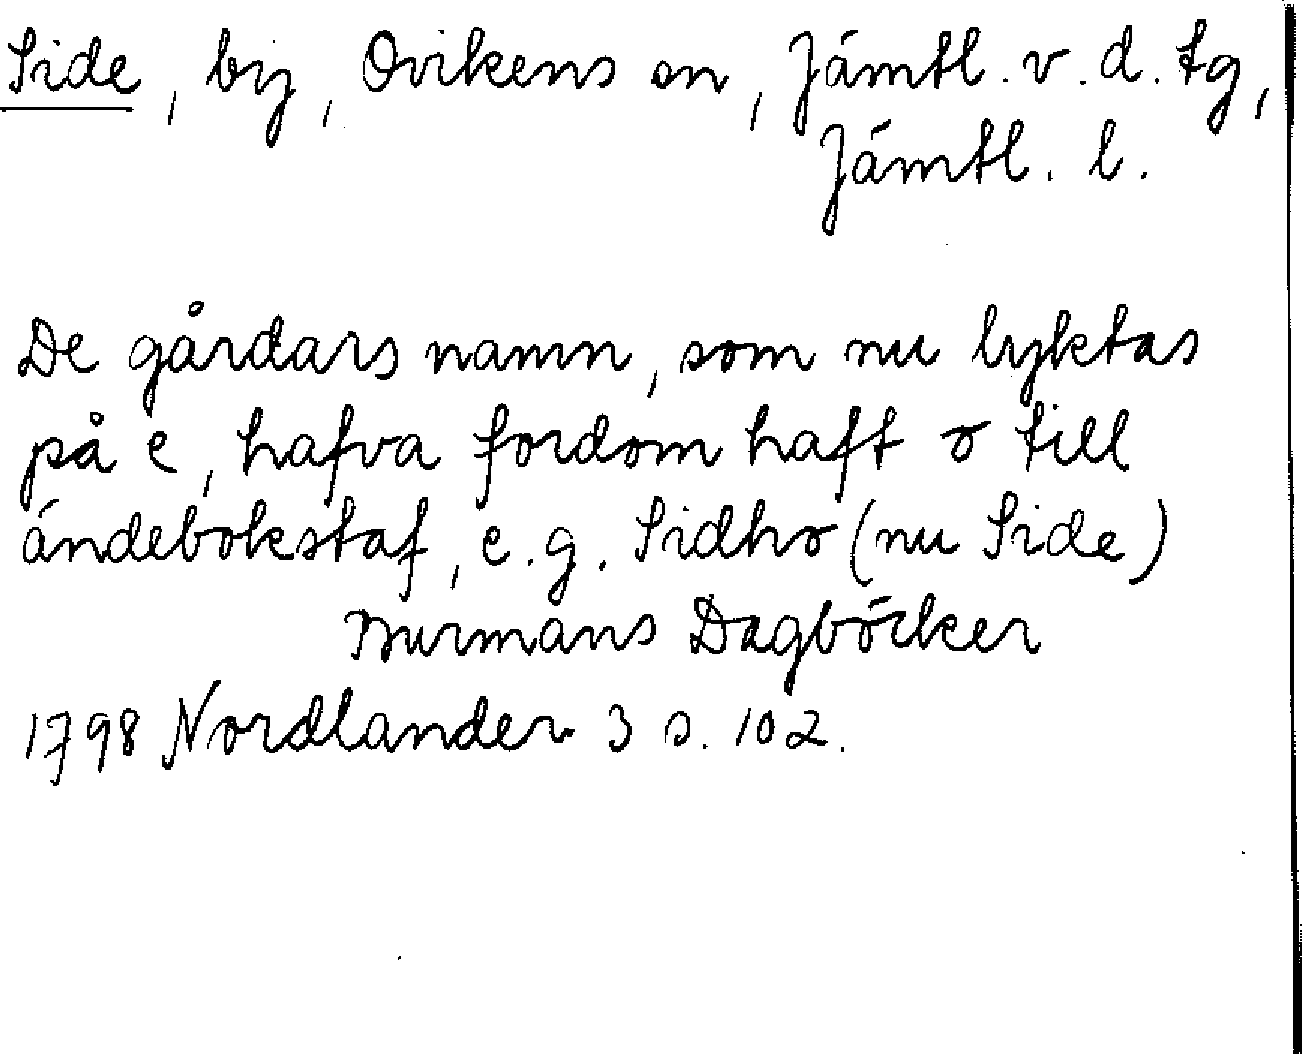 Side, by, Ovikens sn, Jämtl. v. d. tg,
Jämtl. l.
De gårdars namn, som nu lyktas
på e, hafva fordom haft o till
ändebokstaf, e.g. Sidho (nu Side)
Burmans Dagböcker
1798 Nordlander 3 s. 102.